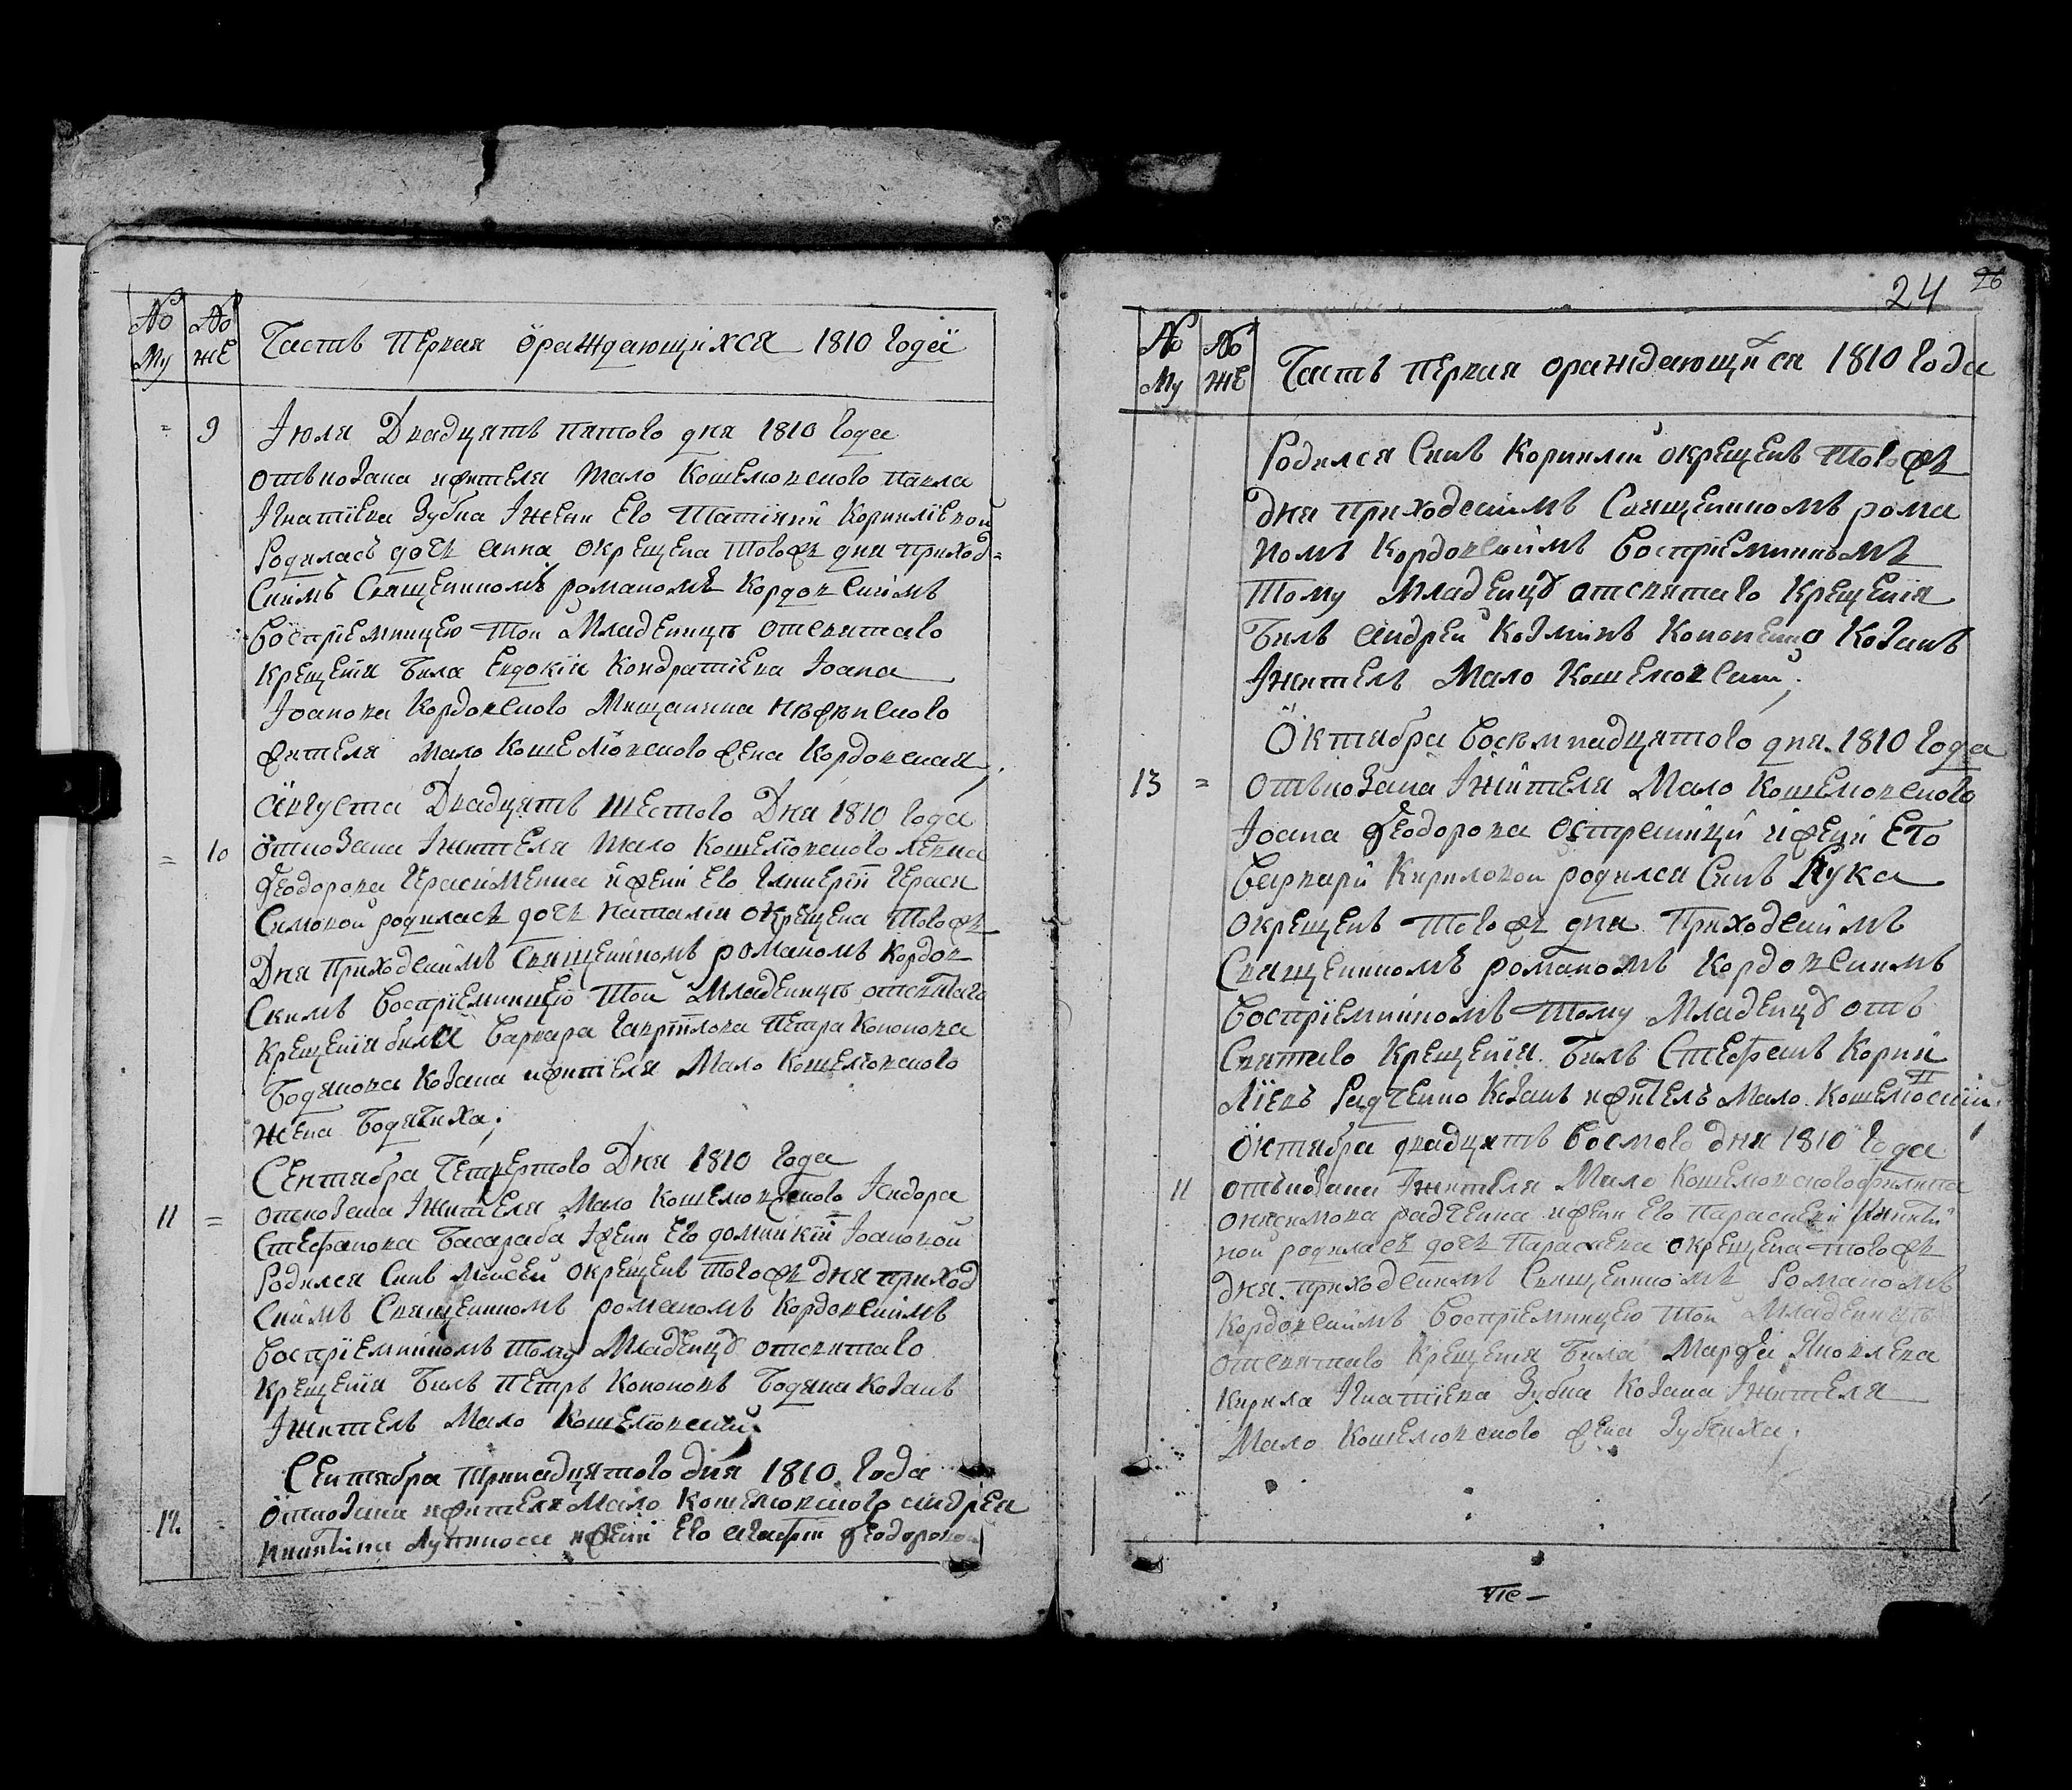 No
Му
No
же
Часть Первая ораждающихся 1810 года
= 9 Июля Двадцять пятого дня 1810 года
отъкозака ижителя Мало Кошелювского Павла
Игнатіева Зубка Іжени Его Татіяни Корнилієвой
Родилась дочь Анна окрещена того ж дня приход=
Скимъ Священникомъ романомъ Кордовскимъ
Воспріемницею той Младеницъ отсвятаго
крещенія била Евдокія Кондратіева Іоана
Іоанова Кордовского Мищанина нѣжинского
жителя Мало Кошелювского жена Кордовская;
Августа Двадцять шестого Дня 1810 года
= 10 Откозака Іжителя Мало Кошелювского Левка
Феодорова Герасименка ижени Его Гликеріи Гераси
Симовой родилась дочь Наталія окрещена того ж
Дня Приходскимъ Священникомъ романомъ Кордов
Скимъ Воспріемницею Той Младеницъ отсвятаго
Крещенія била Варвара Гавріилова Петра Кононова
Бодякова Козака ижителя Мало Кошелювского
жена Бодячиха;
Сентабра Четвертого Дня 1810 года
11 = откозака Іжителя Мало Кошелювского Ісидора
Стефанова Басараба Іжени Его домникіи Іоановой
Родился Синъ Моисей окрещенъ того ж дня приход
Скимъ Священникомъ романомъ Кордовскимъ
Воспріемникомъ тому Младенцу отсвятаго
Крещенія Билъ Петръ Кононовъ Бодяка Козакъ
Іжитель Мало Кошелювский.
Сентабра тринадцятого дня 1810 года
12 = Откозака ижителя Мало Кошелювского андрея
Никитина Лупиноса ижени Его агафіи феодоровой
24 26
No
Му
No
же
Часть первая ораждающихся 1810 года
Родился Синъ Корнилий окрещенъ того ж
дня приходскимъ Священникомъ рома
номъ Кордовскимъ Воспріемникомъ
тому Младенцу отсвятаго Крещенія
Билъ андрей Козминъ Кононенко Козакъ
Іжитель Мало Кошелювский;
Октабра восѣмнадцятого дня 1810 года
13 = отъкозака Іжителя Мало Кошелювского
Іоана Феодорова острайци ижени Его
Варвари Кириловой родился Синъ Лука
окрещенъ того ж дня Приходскимъ
Священникомъ романомъ Кордовскимъ
Воспріемникомъ тому Младенцу отъ
Святаго Крещенія Билъ Стефанъ Корни
ліевъ Радченко Козакъ ижитель Мало Кошелювский.
Октабра двадцять восмого дня 1810 года
11 отъкозака Іжителя Мало Кошелювского филипа
онисимова радченка ижени Его Параскеви Никити
ной родилась дочь Параскева окрещена того ж
дня приходскимъ Священникомъ Романомъ
Кордовскимъ Воспріемницею той Младеницъ
отсвятаго Крещенія Била Марфа Яковлева
Кирила Ігнатіева Зубка Козака Іжителя
Мало Кошелювского жена Зубчиха;